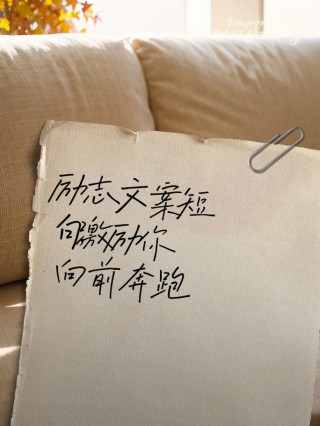 励志文案短
向激励你
向前奔跑